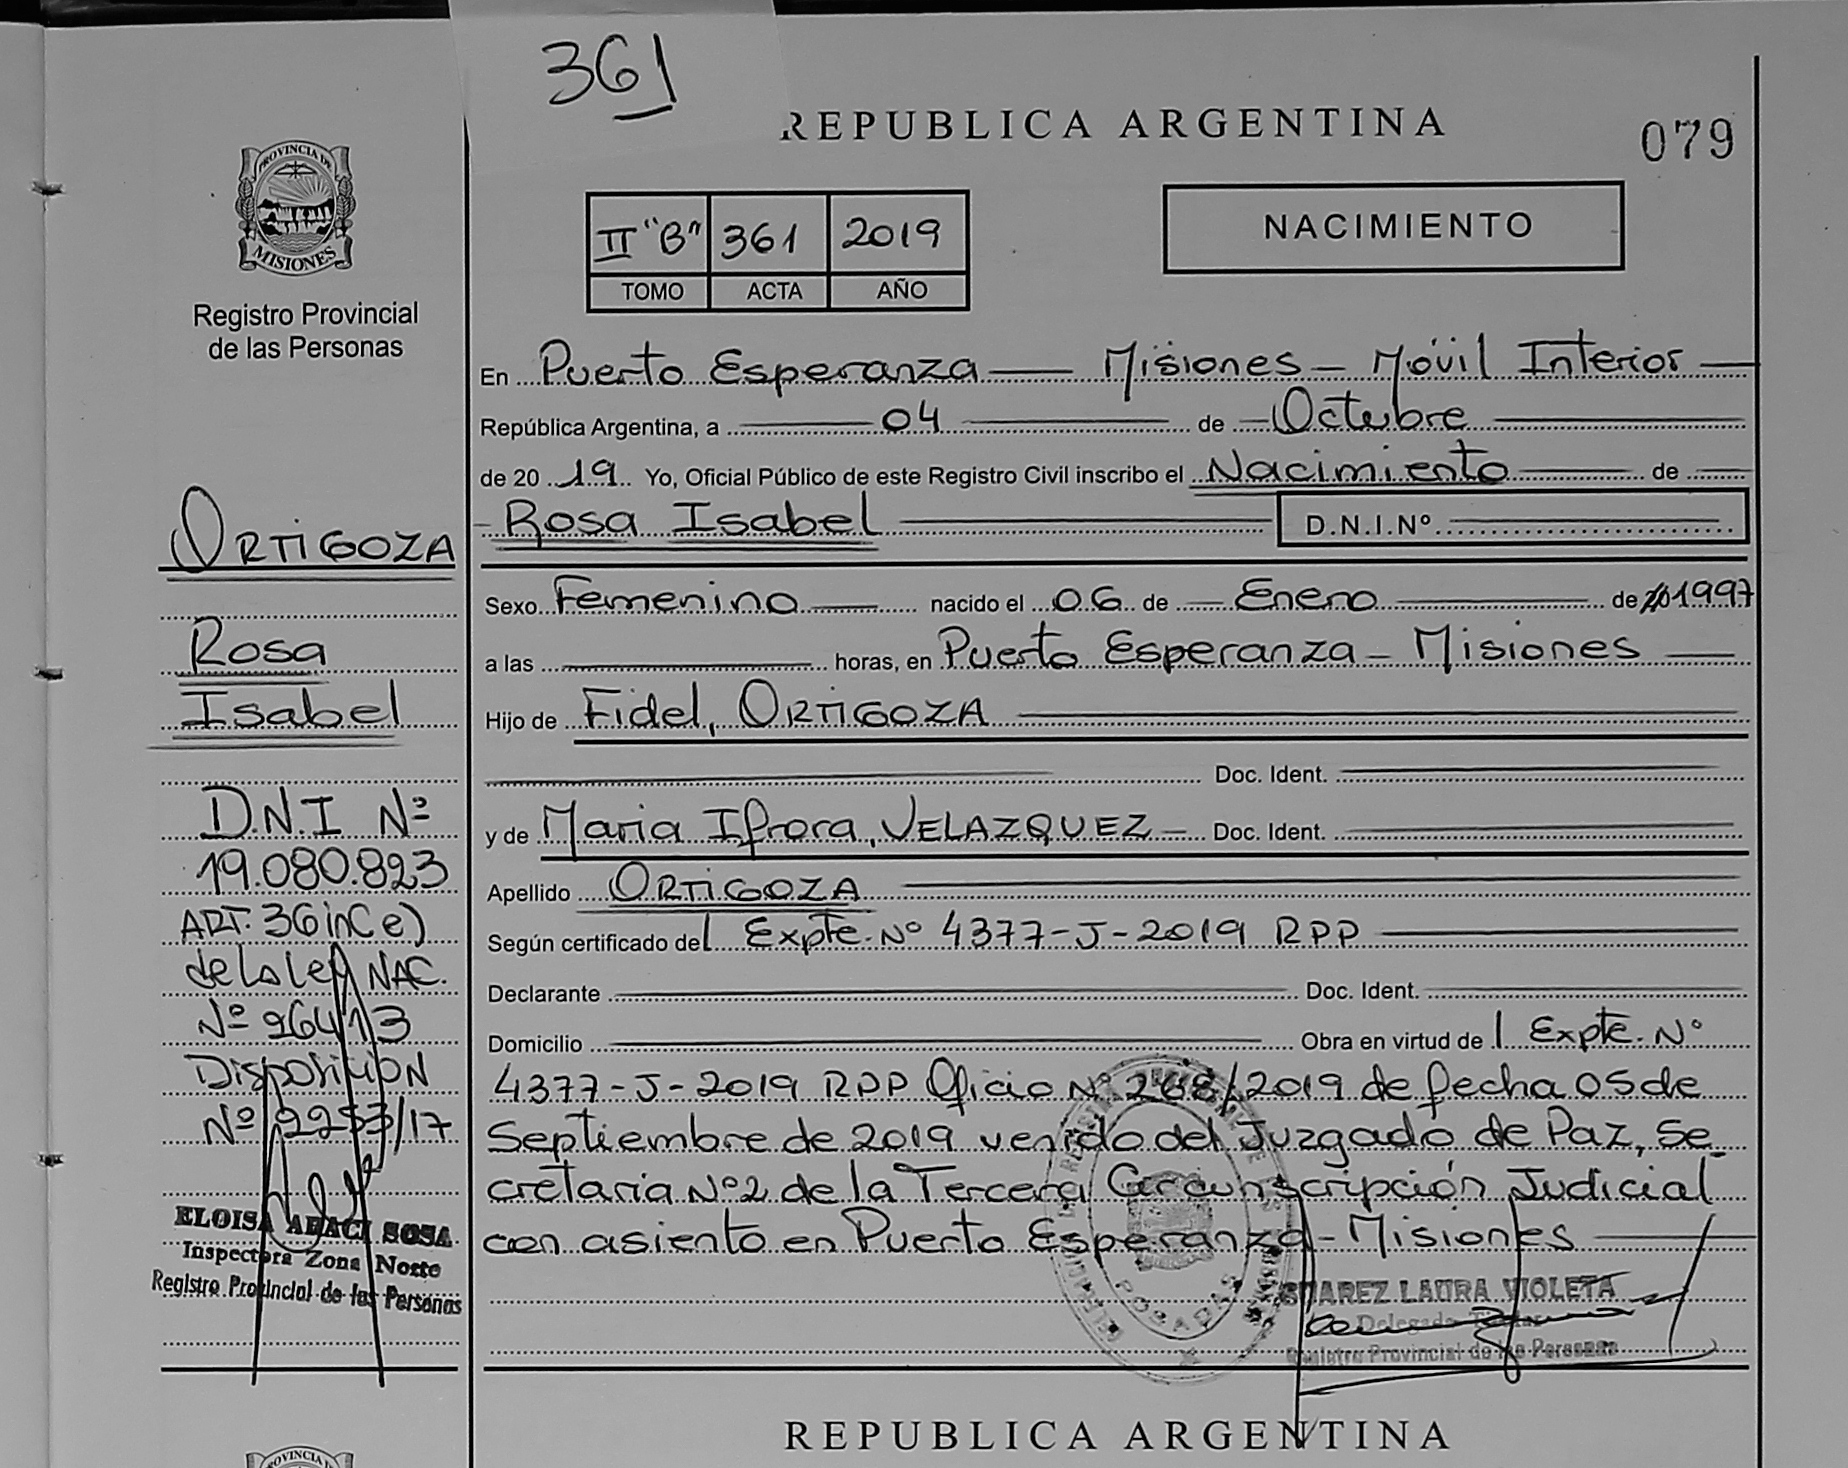 361
REPUBLICA ARGENTINA
079
PROVINCIA DE
MISIONES
Registro Provincial
de las Personas
II "B" 361 2019
TOMO ACTA AÑO
NACIMIENTO
En Puerto Esperanza — Misiones - Móvil Interior —
República Argentina, a 04 de Octubre
de 2019. Yo, Oficial Público de este Registro Civil inscribo el Nacimiento de
Rosa Isabel D.N.I.Nº
Sexo Femenino nacido el 06 de Enero de 1997
a las horas, en Puerto Esperanza - Misiones
Hijo de Fidel, ORTIGOZA
Doc. Ident.
y de Maria Ifrora, VELAZQUEZ Doc. Ident.
Apellido ORTIGOZA
Según certificado del Expte. Nº 4377-J-2019 RPP
Declarante Doc. Ident.
Domicilio Obra en virtud de l Expte. Nº
4377-J-2019 RPP Oficio Nº 268/2019 de fecha 05 de
Septiembre de 2019 venido del Juzgado de Paz, Se
cretaria Nº2 de la Tercera Circunscripción Judicial
con asiento en Puerto Esperanza - Misiones
SUAREZ LAURA VIOLETA
Registro Provincial de las Personas
POSADAS
ORTIGOZA
Rosa
Isabel
D.N.I Nº
19.080.823
ART. 36 inC e)
de la ley NAC.
Nº 26413
DISPOSICION
Nº 2253/17
ELOISA ABACI SOSA
Inspectora Zona Norte
Registro Provincial de las Personas
REPUBLICA ARGENTINA
PROVINCIA DE